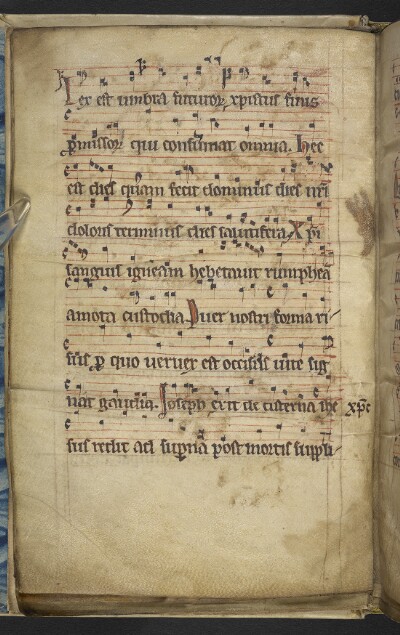 Lex est umbra futuror xpistus finis
pmissor qui consumat omnia. Hec
est dies quam fecit dominus dies nri
doloris terminus dies salutifera. Xpi
sanguis igneam hebetauit rumphea
amota custodia. Puer nostri forma ri-
sus p quo ueruex est occisus uite sig
nat gaudia. Joseph exit de cisterna ihe xpc
sus redit ad supna post mortis suppli-